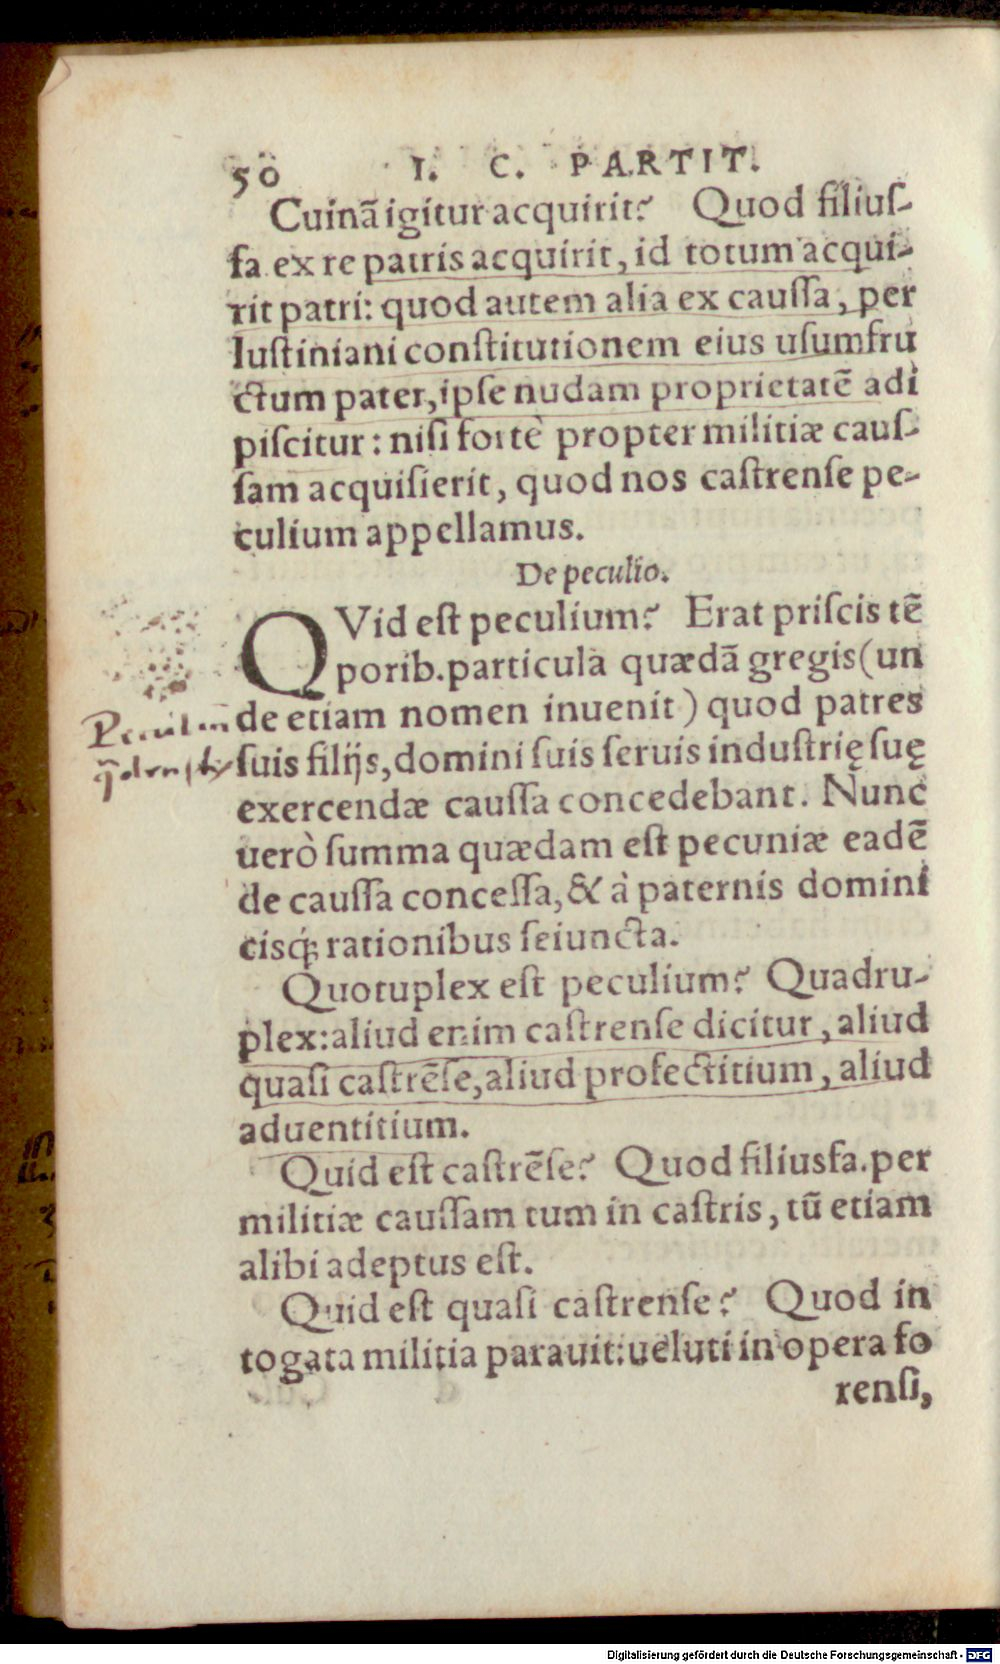 50 I. C. PARTIT.
Cuinā igitur acquirit? Quod filiuſ-
fa. ex re patris acquirit, id totum acqui-
rit patri: quod autem alia ex cauſſa, per
Iuſtiniani conſtitutionem eius uſumfru
ctum pater, ipſe nudam proprietatē adi
piſcitur: niſi fortè propter militiæ cauſ-
ſam acquiſierit, quod nos caſtrenſe pe-
culium appellamus.
De peculio.
QVid eſt peculium? Erat priſcis tē
porib. particula quædā gregis (un
de etiam nomen inuenit) quod patres
ſuis filijs, domini ſuis ſeruis induſtrię ſuę
exercendæ cauſſa concedebant. Nunc
uerò ſumma quædam eſt pecuniæ eadē
de cauſſa conceſſa, & à paternis domini
cisq́; rationibus ſeiuncta.
Quotuplex eſt peculium? Quadru-
plex: aliud enim caſtrenſe dicitur, aliud
quaſi caſtrēſe, aliud profectitium, aliud
aduentitium.
Quid eſt caſtrēſe? Quod filiusfa. per
militiæ cauſſam tum in caſtris, tū etiam
alibi adeptus eſt.
Quid eſt quaſi caſtrenſe? Quod in
togata militia parauit: ueluti in opera fo
renſi,
Digitalisierung gefördert durch die Deutsche Forschungsgemeinschaft - DFG